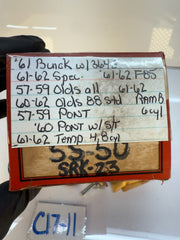 '61 Buick w/364.3
61-62 Spec. '61-62 F-85
57-59 Olds all 61-62
60-62 Olds 88 std RAMB
57-59 PONT 6cyl
'60 PONT w/s/r
61-62 Temp 4,8cyl
SS-50
SRK-23
C17-11